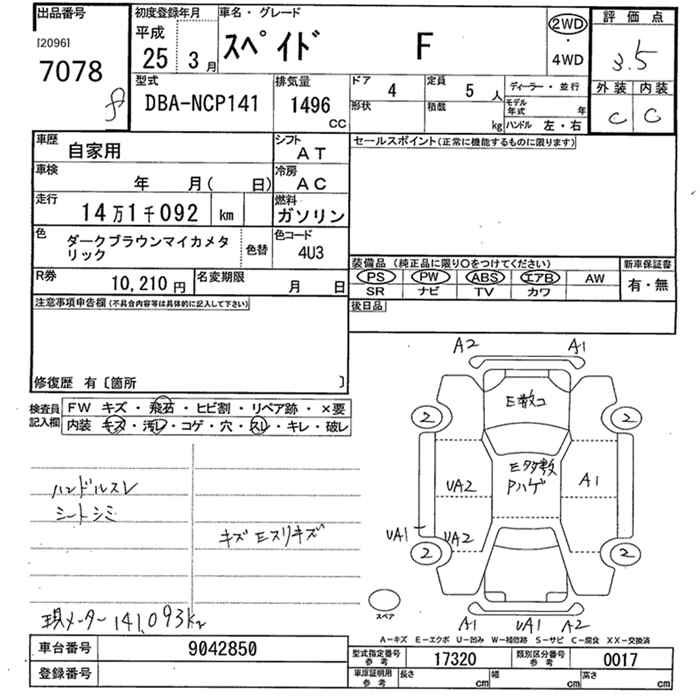 出品番号 [2096] 7078
初度登録年月 平成 25 3月
車名・グレード スペイド F
2WD ・ 4WD
評価点 3.5
外装 内装
C C
型式 DBA-NCP141
排気量 1496 CC
ドア 4 定員 5 人
形状 積載 kg
ディーラー・並行
モデル年式 年
ハンドル 左・右
車歴 自家用
シフト AT
車検 年 月( 日)
冷房 AC
走行 14万1千092 km
燃料 ガソリン
色 ダークブラウンマイカメタリック 色替
色コード 4U3
R券 10,210円 名変期限 月 日
注意事項申告欄(不具合内容等は具体的に記入して下さい)
修復歴 有〔箇所 〕
セールスポイント(正常に機能するものに限ります)
装備品(純正品に限り○をつけてください) 新車保証書
PS PW ABS エアB AW 有・無
SR ナビ TV カワ
後日品
検査員記入欄
FW キズ・飛石・ヒビ割・リペア跡・×要
内装 キズ・汚レ・コゲ・穴・スレ・キレ・破レ
ハンドルスレ
シートシミ
キズEスリキズ
現メーター141,093km
A2 A1
2 2
E数コ
E多数
Pハゲ
UA2 A1
UA1 UA2
2 2
スペア
A1 UA1 A2
A-キズ E-エクボ U-凹み W-補修跡 S-サビ C-腐食 XX-交換済
車台番号 9042850
登録番号
型式指定番号 参考 17320 類別区分番号 参考 0017
車庫証明用 参考 長さ cm 幅 cm 高さ cm